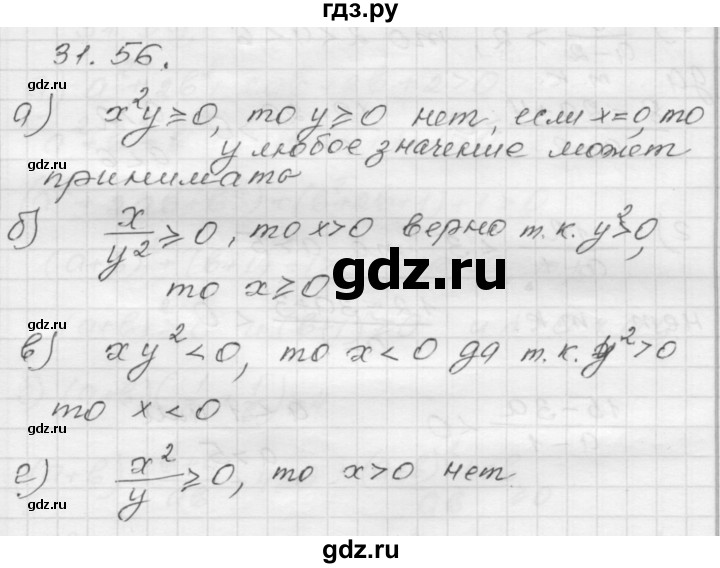 гдз.ру
31.56.
gdz.ru gdz.ru
а) x²y ≥ 0, то y ≥ 0 нет, если x=0, то
у любое значение может
принимать
gdz.ru gdz.ru
б) x/y² ≥ 0, то x>0 верно т.к. y²>0,
gdz.ru
то x ≥ 0
gdz.ru gdz.ru
в) xy² < 0, то x < 0 да т.к. y² > 0
то x < 0
gdz.ru gdz.ru
г) x²/y ≥ 0, то x>0 нет
gdz.ru gdz.ru
gdz.ru